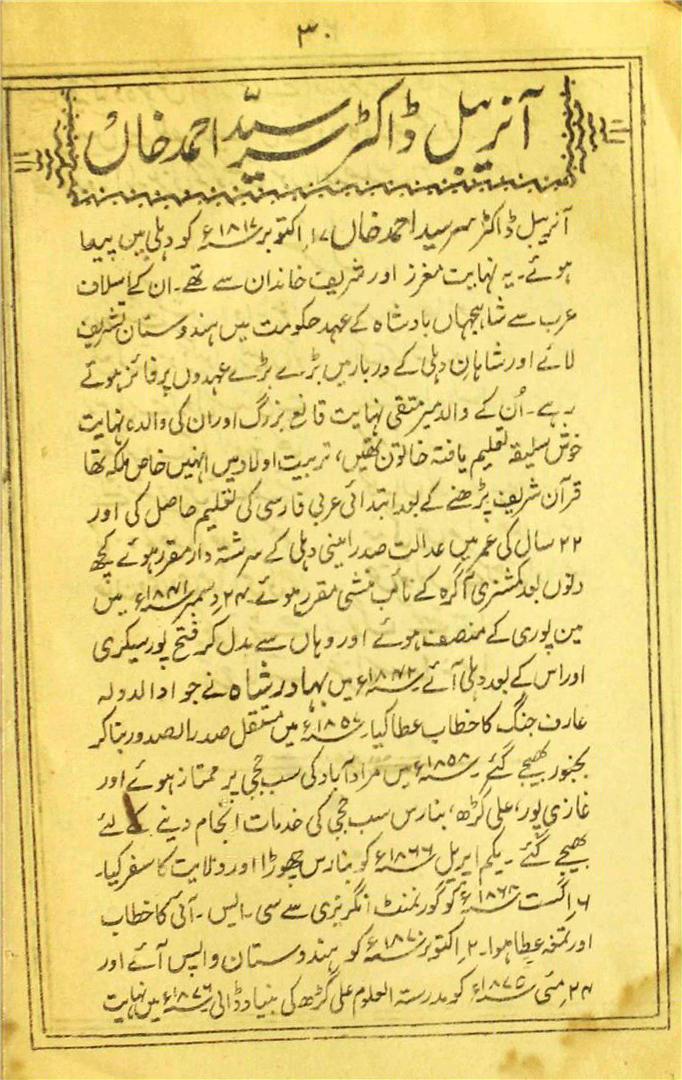 ۳۰
آنریبل ڈاکٹر سر سیّد احمد خاں
آنریبل ڈاکٹر سر سید احمد خاں ۱۷؍ اکتوبر ۱۸۱۷ء کو دہلی میں پیدا
ہوئے۔ یہ نہایت معزز اور شریف خاندان سے تھے۔ ان کے اسلاف
عرب سے شاہجہاں بادشاہ کے عہد حکومت میں ہندوستان تشریف
لائے اور شاہان دہلی کے دربار میں بڑے بڑے عہدوں پر فائز ہوتے
رہے۔ اُن کے والد میر متقی نہایت قانع بزرگ اور ان کی والدہ نہایت
خوش سلیقہ تعلیم یافتہ خاتون تھیں، تربیت اولاد میں انہیں خاص ملکہ تھا
قرآن شریف پڑھنے کے بعد ابتدائی عربی فارسی کی تعلیم حاصل کی اور
۲۲ سال کی عمر میں عدالت صدر امینی دہلی کے سرشتہ دار مقرر ہوئے کچھ
دنوں بعد کمشنری آگرہ کے نائب منشی مقرر ہوئے۔ ۲۴؍ دسمبر ۱۸۴۱ء میں
مین پوری کے منصف ہوئے اور وہاں سے بدل کر فتح پور سیکری
اور اس کے بعد دہلی آئے ۱۸۴۲ء میں بہادر شاہ نے جواد الدولہ
عارف جنگ کا خطاب عطا کیا۔ میں مستقل صدر الصدور بنا کر
بجنور بھیجے گئے۔ ۱۸۵۸ء میں مراد آباد کی سب ججی پر ممتاز ہوئے اور
غازی پور، علی گڑھ، بنارس سب ججی کی خدمات انجام دینے کے لئے
بھیجے گئے۔ یکم اپریل ۱۸۶۶ء کو بنارس چھوڑا اور ولایت کا سفر کیا۔
۶؍ اگست کو گورنمنٹ انگریزی سے سی۔ ایس۔ آئی کا خطاب
اور تمغہ عطا ہوا۔ ۲؍ اکتوبر ۱۸۷۰ء کو ہندوستان واپس آئے اور
۲۴؍ مئی ۱۸۷۵ء کو مدرستہ العلوم علی گڑھ کی بنیاد ڈالی ۱۸۷۶ء میں نہایت